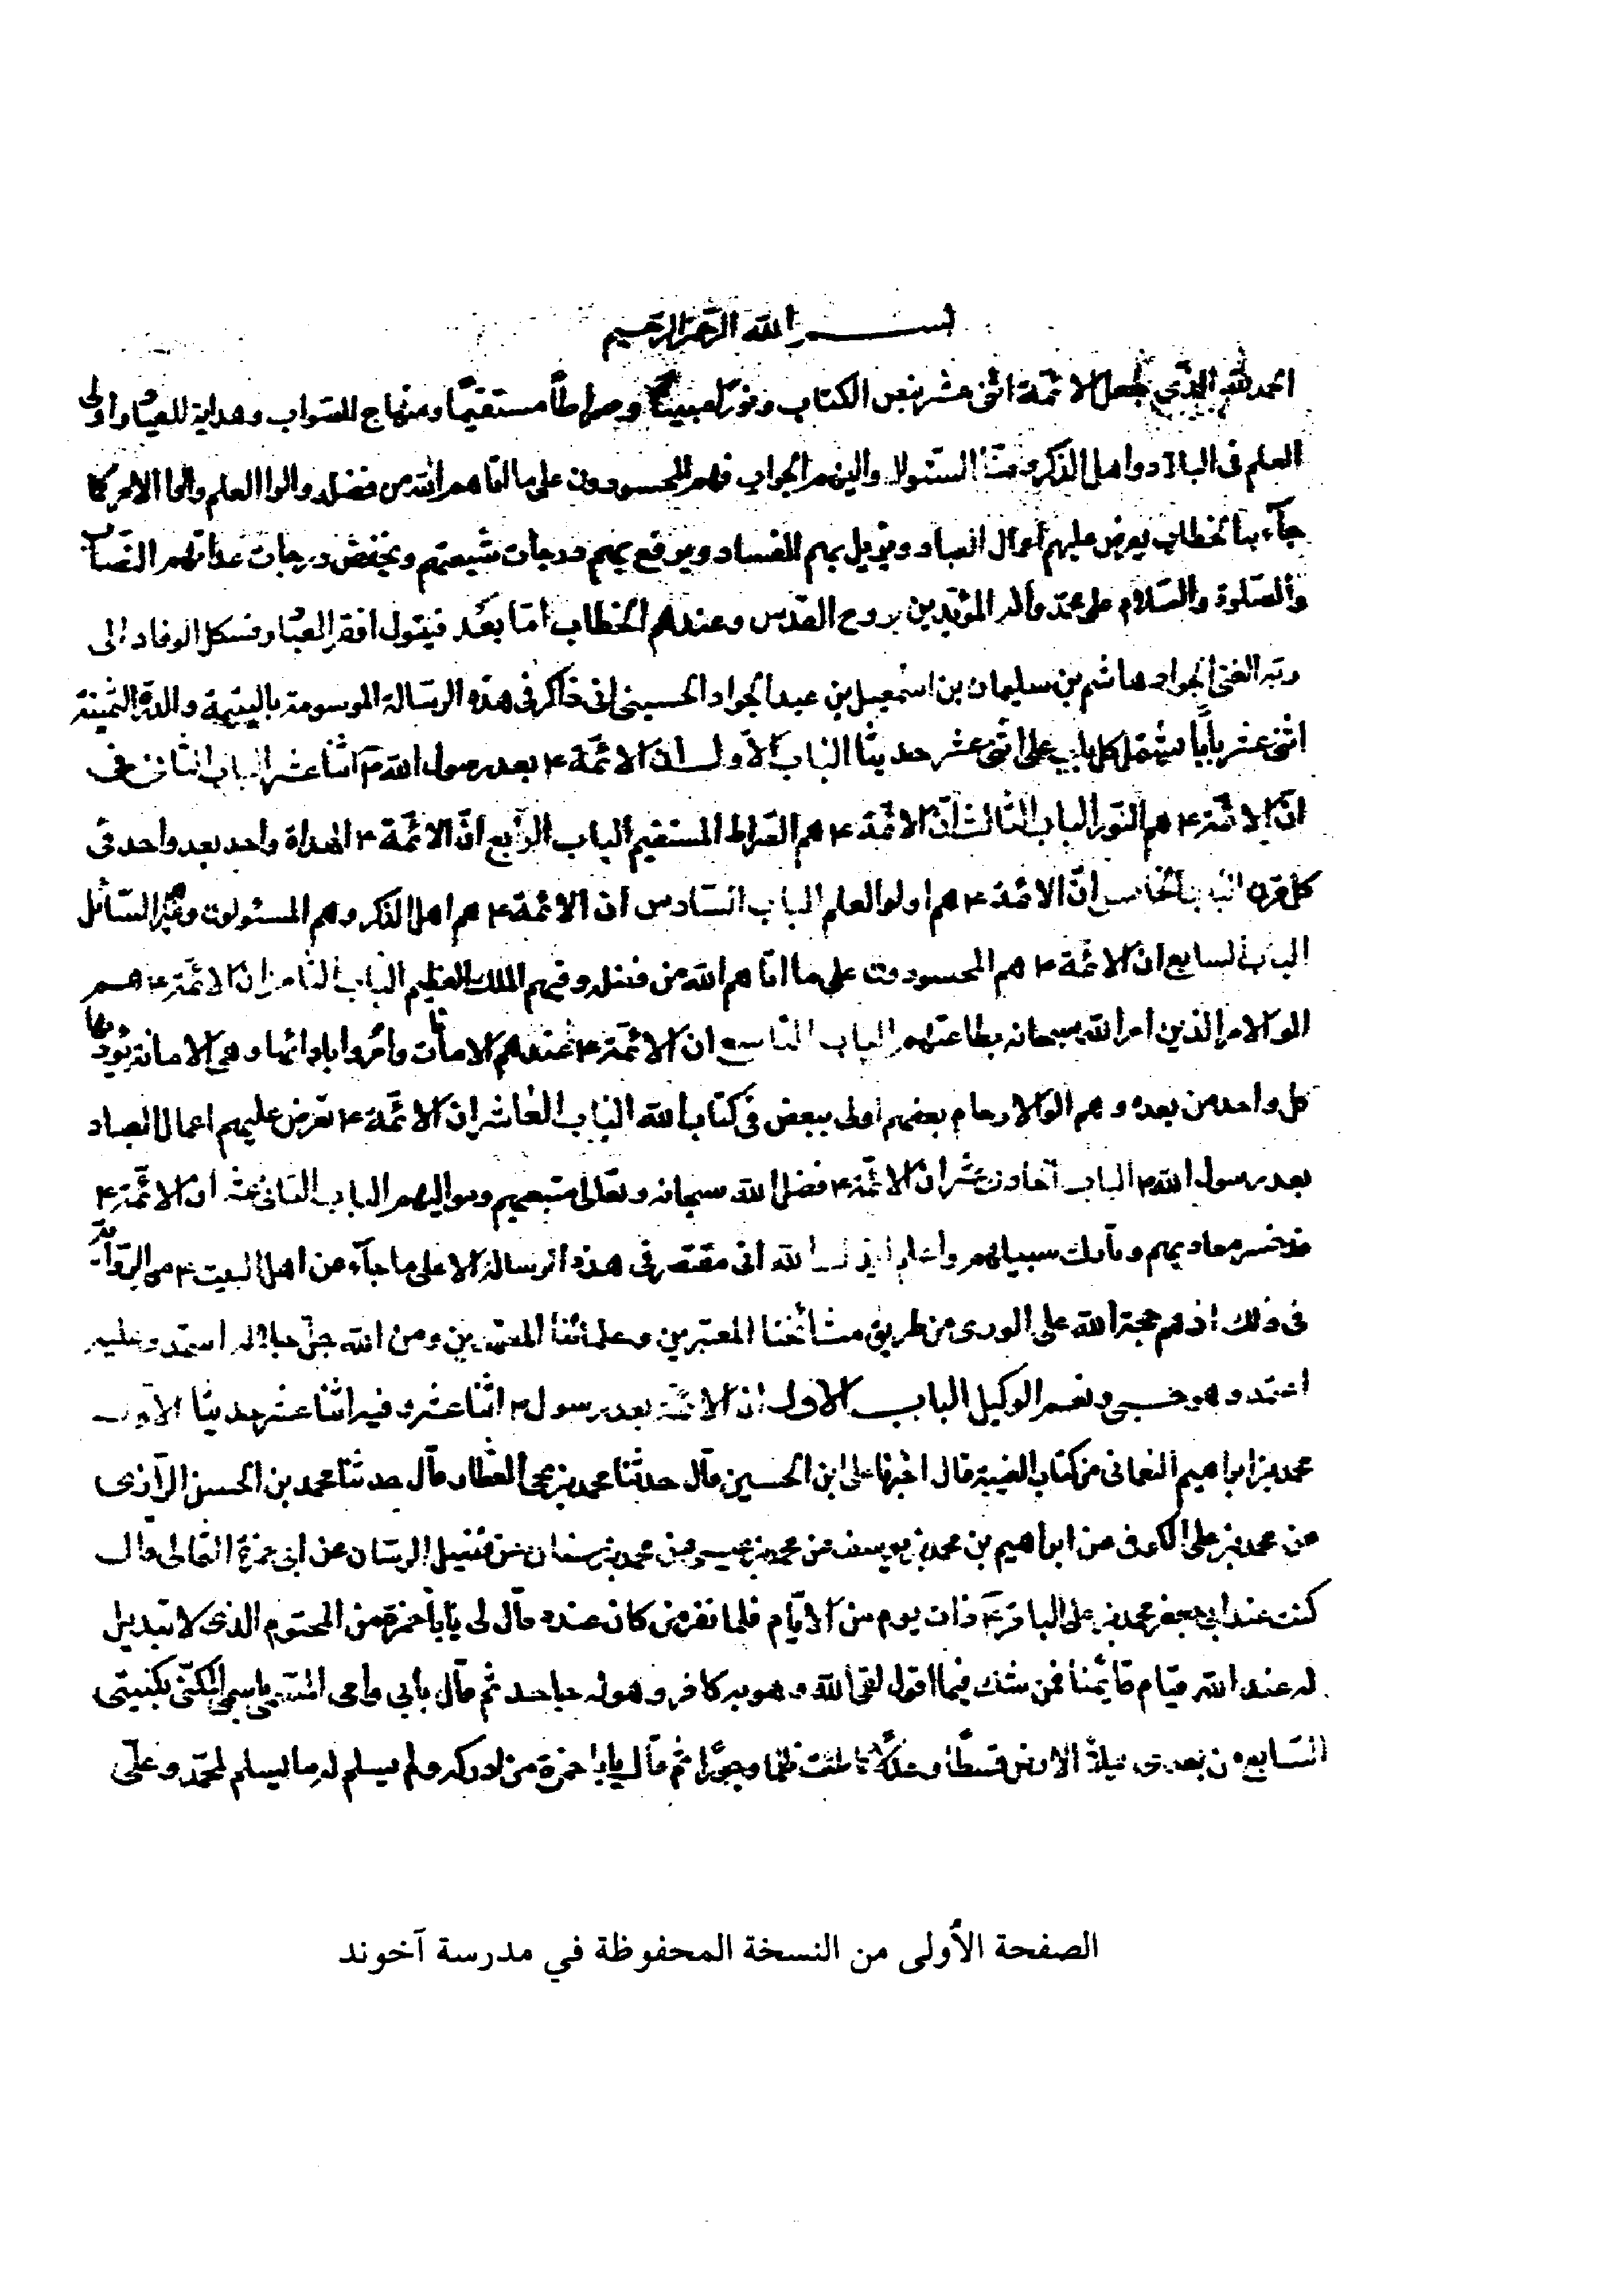 بسم الله الرحمن الرحيم
الحمد لله الذي جعل الائمة اثنى عشر بنص الكتاب ونورا مبينا وصراطاً مستقيمًا ومنهاج للصواب وهداية للعباد واولى
العلم فى البلاد واهل الذكر والينهم الجواب فهم المحسودون على ما اتاهم الله من فضله والوا العلم والوا الامر كما
جآء به الخطاب يعرض عليهم اعمال العباد ويزيل بهم الفساد ويرفع بهم درجات شيعتهم ويخفض درجات عداتهم النصاب
والصلوة والسلام على محمد وآله المؤيدين بروح القدس وعندهم الخطاب امّا بعد فيقول افقر العباد الى
ربه الغنى الجواد هاشم بن سليمان بن اسمعيل بن عبد الجواد الحسينى انى ذاكر فى هذه الرسالة الموسومة باليتيمة والدرة الثمينة
اثنى عشر بابًا يشتمل كل باب على اثنى عشر حديثا الباب الاول ان الائمة ۴ بعد رسول الله ۳ اثنا عشر الباب الثانى فى
انّ الائمة ۴ هم النور الباب الثالث انّ الائمة ۴ هم الصراط المستقيم الباب الرابع انّ الائمة ۴ الهداة واحد بعد واحد فى
كل قرن الباب الخامس انّ الائمة ۴ هم اولوا العلم الباب السادس ان الائمة ۴ هم اهل الذكر وهم المسئولون السائل
الباب السابع ان الائمة ۴ هم المحسودون على ما اتاهم الله من فضله وفيهم الملك العظيم الباب الثامن ان الائمة ۴ هم
الوا الامر الذين امر الله سبحانه بطاعتهم الباب التاسع ان الائمة ۴ عندهم الامانات وامروا باداءها وهى الامانة يؤديها
كل واحد من بعده وهم الوا الارحام بعضهم اولى ببعض فى كتاب الله الباب العاشر ان الائمة ۴ تعرض عليهم اعمال العباد
بعد رسول الله ۳ الباب الحادى عشر ان الائمة ۴ فضل الله سبحانه وتعالى متبعيهم ومواليهم الباب الثانى عشر ان الائمة ۴
معاديهم سبيلهم واعلم الله انى مقتصر فى هذه الرسالة الا على ما جآء من اهل البيت ۴ من الروايات
فى ذلك اذ هم حجة الله على الورى من طريق مشائخنا المعتبرين وعلمائنا المعتمدين ومن الله جلّ جلاله استمد وعليه
اعتمد وهو حسبى ونعم الوكيل الباب الاول ان الائمة بعد رسول ۳ اثنا عشر وفيه اثنا عشر حديثا الاول
محمد بن ابراهيم النعمانى من كتاب الغيبة قال اخبرنا على ابن الحسين قال حدثنا محمد بن يحيى العطار قال حدثنا محمد بن الحسن الرازى
عن محمد بن على الكوفى عن ابراهيم بن محمد بن يوسف عن محمد بن عيسى عن محمد بن سنان عن فضيل الرسان عن ابى حمزة الثمالى قال
كنت عند ابى جعفر محمد بن على الباقر ۴ ذات يوم من الايّام فلما تفرق من كان عنده قال لى يابا حمزة من المحتوم الذى لا تبديل
له عند الله قيام قائمنا فمن شك فيما اقول لقى الله وهو به كافر وهو له جاحد ثم قال بابى وامى المسمى باسمى المكنى بكنيتى
السابع من بعدى يملأ الارض قسطًا وعدلًا كما ملئت ظلما وجورًا ثم قال يابا حمزة من ادركه ولم يسلم له ما يسلم لمحمد وعلى
الصفحة الأولى من النسخة المحفوظة في مدرسة آخوند